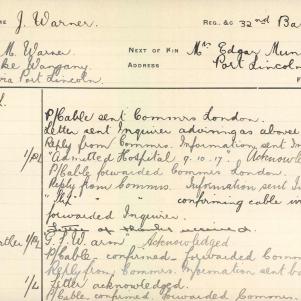 J. Warner. REG. &C 32nd Ba
M. Warner NEXT OF KIN Mrs Edgar Mun
ke Wangary ADDRESS Port Lincoln
ia Port Lincoln. F
P/Cable sent Commrs London.
Letter sent Inquirer advising as above
Reply from Commrs. Information sent In
"Admitted Hospital 9.10.17" Acknowle
P/Cable forwarded Commrs London.
Reply from Commrs. Information sent In
" " confirming cable in
forwarded Inquirer.
Letter of received
rther G.S.W. arm" Acknowledged
P/Cable confirmed forwarded Comm
Reply from Commrs. Information sent b
Letter acknowledged.
P/Cable confirmed forwarded Commrs